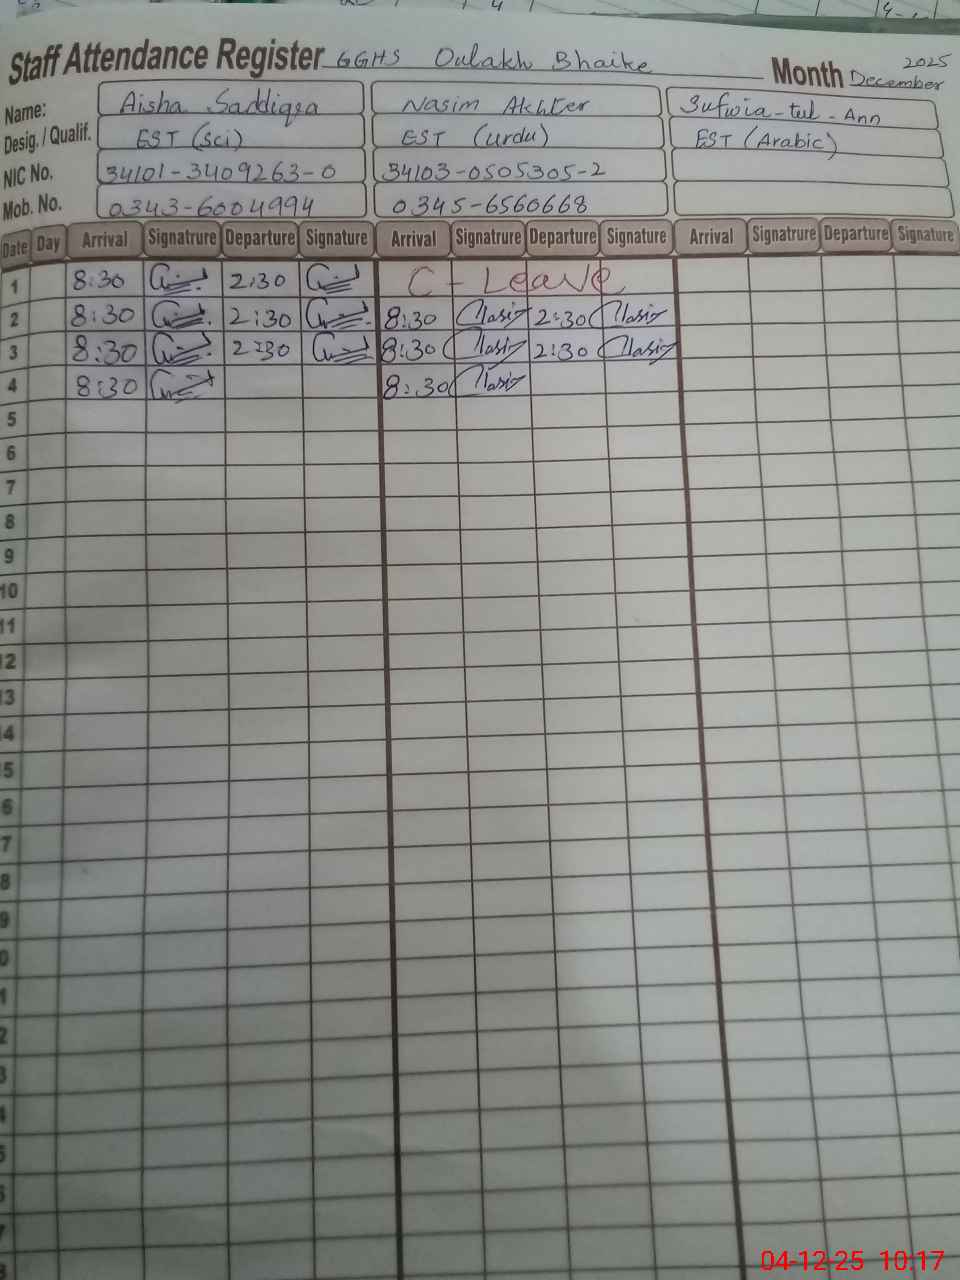 Staff Attendance Register GGHS Oulakh Bhaike Month December 2025
Name: Aisha Saddiqa Nasim Akhter Sufwia-tul-Ann
Desig. / Qualif. EST (Sci) EST (Urdu) EST (Arabic)
NIC No. 34101-3409263-0 34103-0505305-2
Mob. No. 0343-6004994 0345-6560668
Date Day Arrival Signatrure Departure Signature Arrival Signatrure Departure Signature Arrival Signatrure Departure Signature
1 8:30 2:30 C-Leave
2 8:30 2:30 8:30 2:30
3 8:30 2:30 8:30 2:30
4 8:30 8:30
5
6
7
8
9
10
11
2
3
4
5
6
7
8
9
0
1
2
3
4
5
6
7
8
04-12-25 10:17